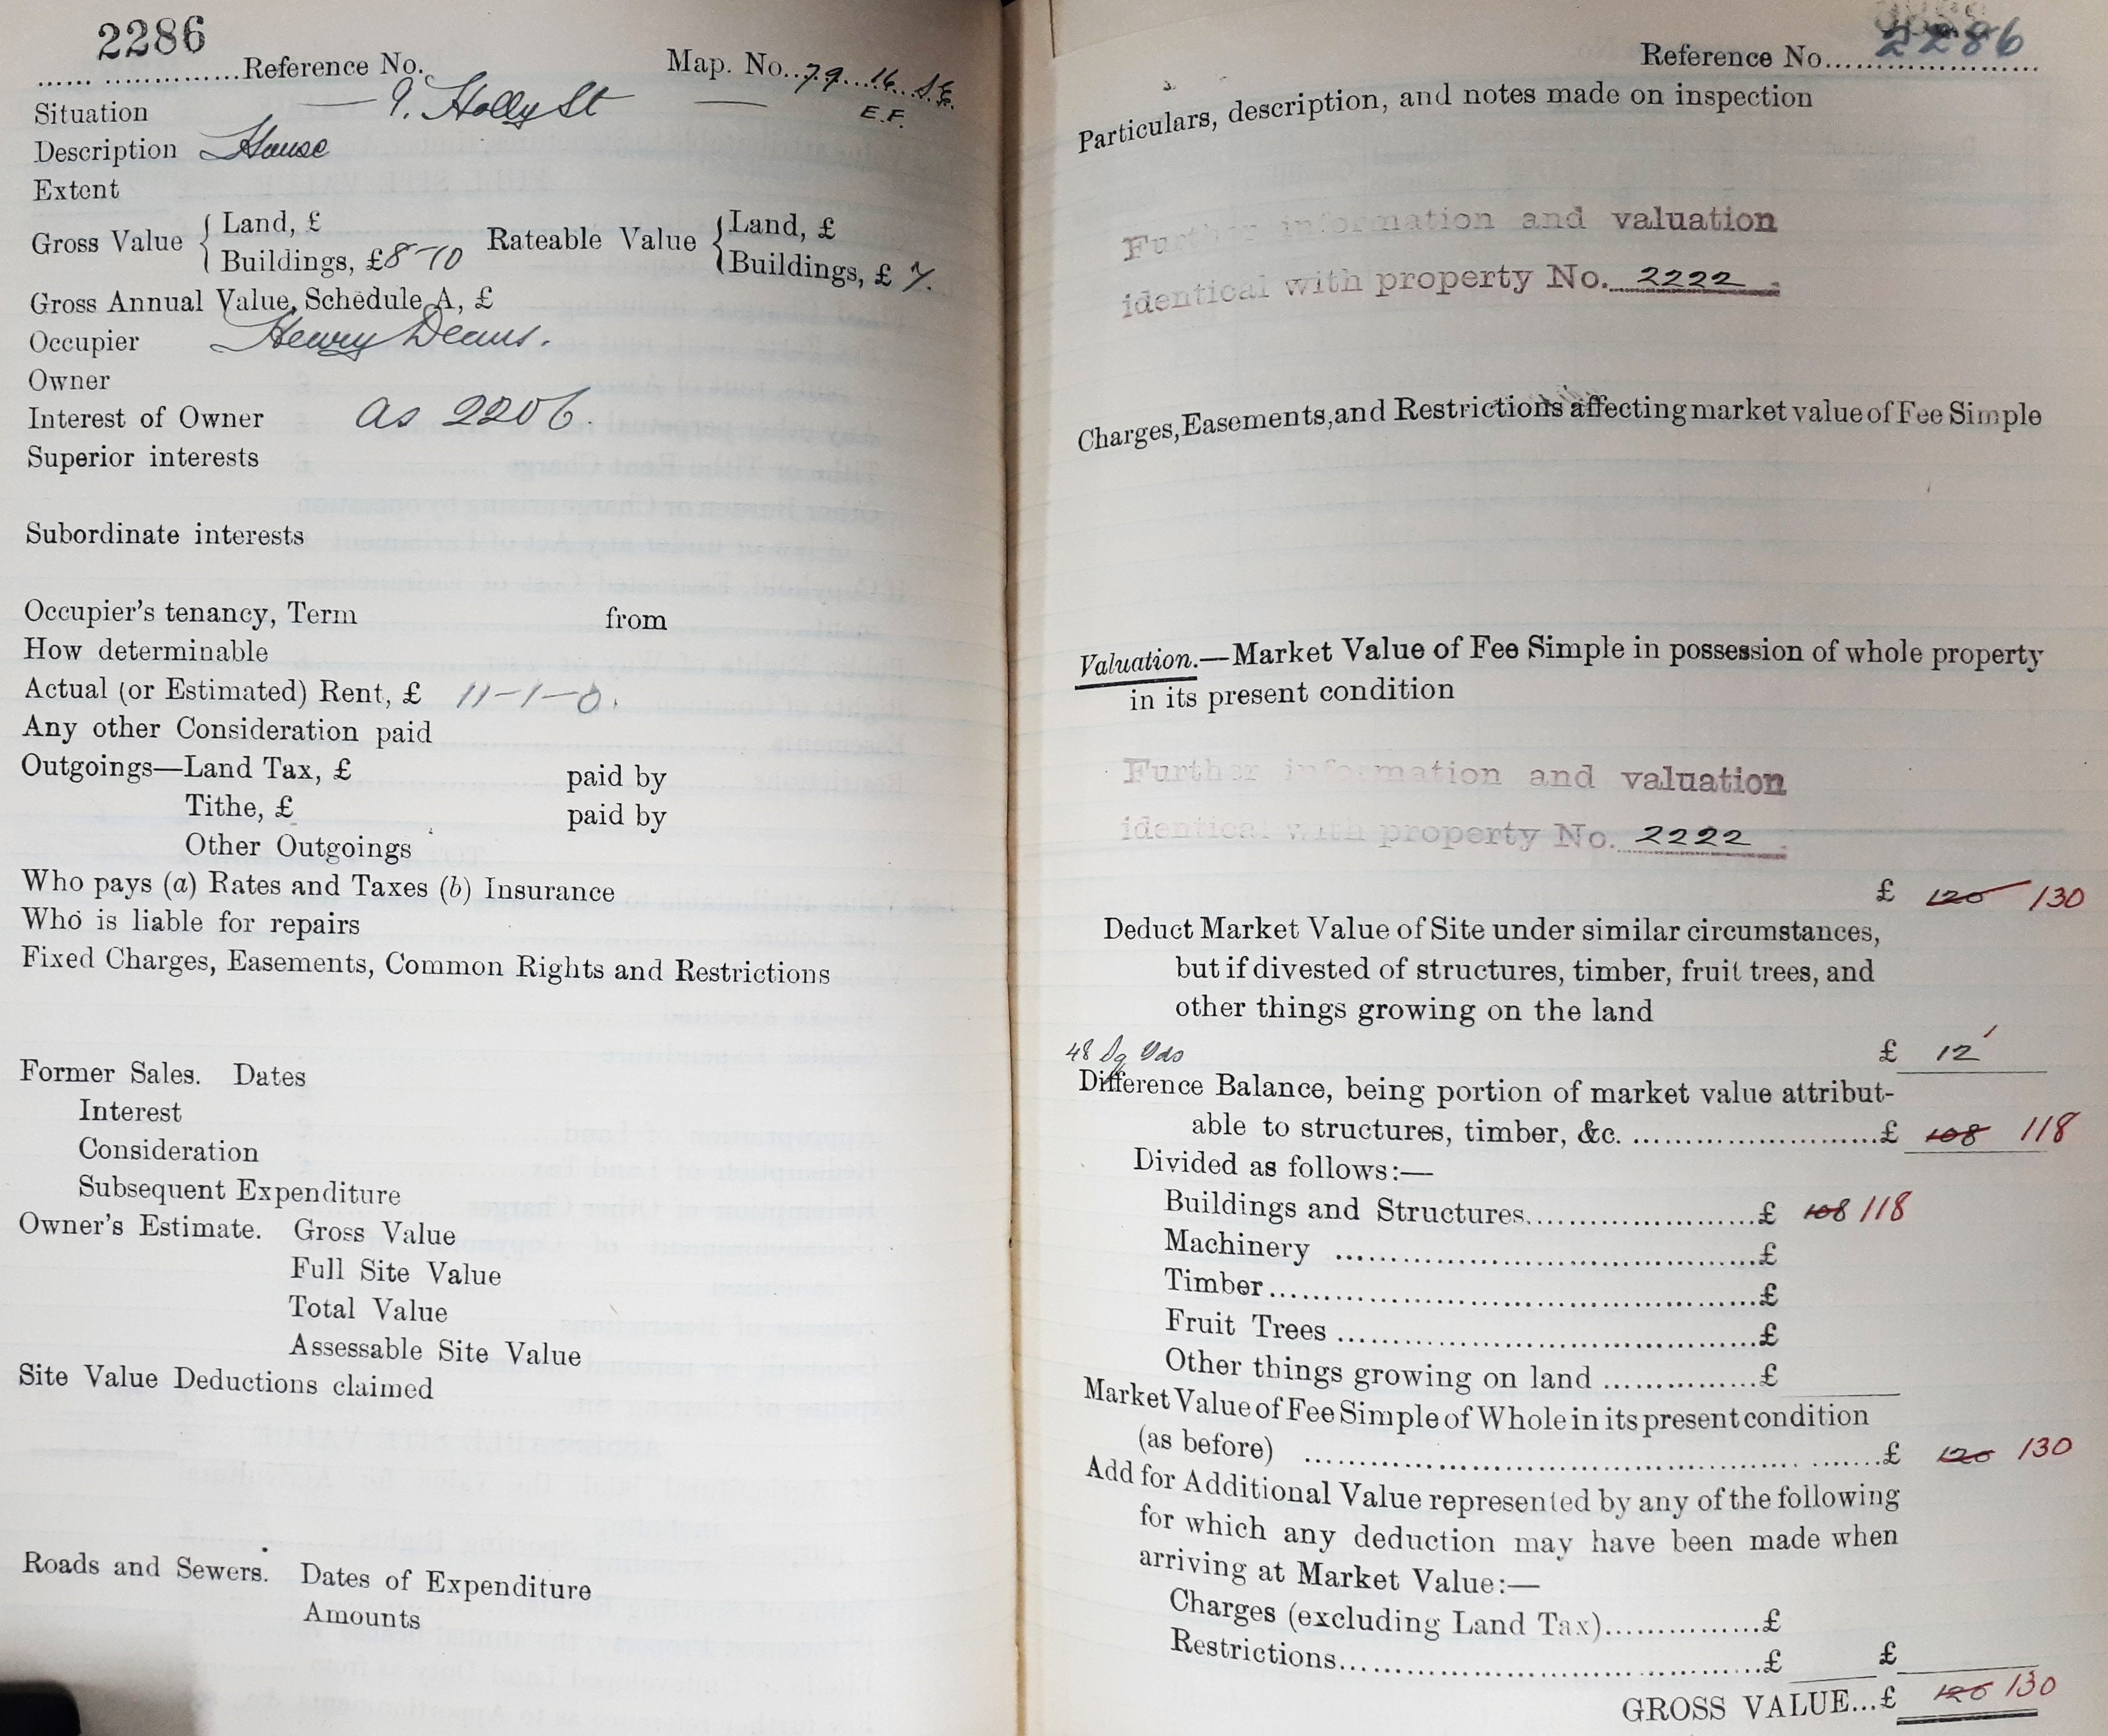 2286
...... ..............Reference No. Map. No. 79 16 S.E.
E.F.
Situation — 9. Holly St —
Description House
Extent
Gross Value { Land, £ Rateable Value { Land, £
Buildings, £8-10 Buildings, £ 7.
Gross Annual Value, Schedule A, £
Occupier Henry Deans.
Owner
Interest of Owner as 2206.
Superior interests
Subordinate interests
Occupier's tenancy, Term from
How determinable
Actual (or Estimated) Rent, £ 11-1-0.
Any other Consideration paid
Outgoings—Land Tax, £ paid by
Tithe, £ paid by
Other Outgoings
Who pays (a) Rates and Taxes (b) Insurance
Who is liable for repairs
Fixed Charges, Easements, Common Rights and Restrictions
Former Sales. Dates
Interest
Consideration
Subsequent Expenditure
Owner's Estimate. Gross Value
Full Site Value
Total Value
Assessable Site Value
Site Value Deductions claimed
Roads and Sewers. Dates of Expenditure
Amounts
Reference No. 2286
Particulars, description, and notes made on inspection
Further information and valuation
identical with property No. 2222
Charges, Easements, and Restrictions affecting market value of Fee Simple
Valuation.—Market Value of Fee Simple in possession of whole property
in its present condition
Further information and valuation
identical with property No. 2222
£ 120 130
Deduct Market Value of Site under similar circumstances,
but if divested of structures, timber, fruit trees, and
other things growing on the land
48 Sq Yds £ 12
Difference Balance, being portion of market value attribut-
able to structures, timber, &c. ............................£ 108 118
Divided as follows:—
Buildings and Structures.........................£ 108 118
Machinery .............................................£
Timber....................................................£
Fruit Trees .............................................£
Other things growing on land ................£
Market Value of Fee Simple of Whole in its present condition
(as before) ..............................................................£ 120 130
Add for Additional Value represented by any of the following
for which any deduction may have been made when
arriving at Market Value:—
Charges (excluding Land Tax)................£
Restrictions.............................................£ £
GROSS VALUE...£ 120 130